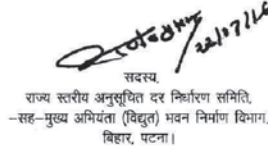 22/07/16
सदस्य,
राज्य स्तरीय अनुसूचित दर निर्धारण समिति,
–सह–मुख्य अभियंता (विद्युत) भवन निर्माण विभाग,
बिहार, पटना।